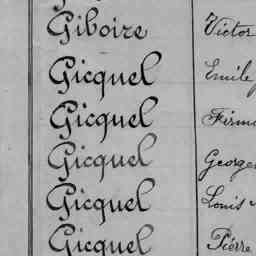 Giboire Victor
Gicquel Emile
Gicquel Firmi
Gicquel George
Gicquel Louis
Gicquel Pierre